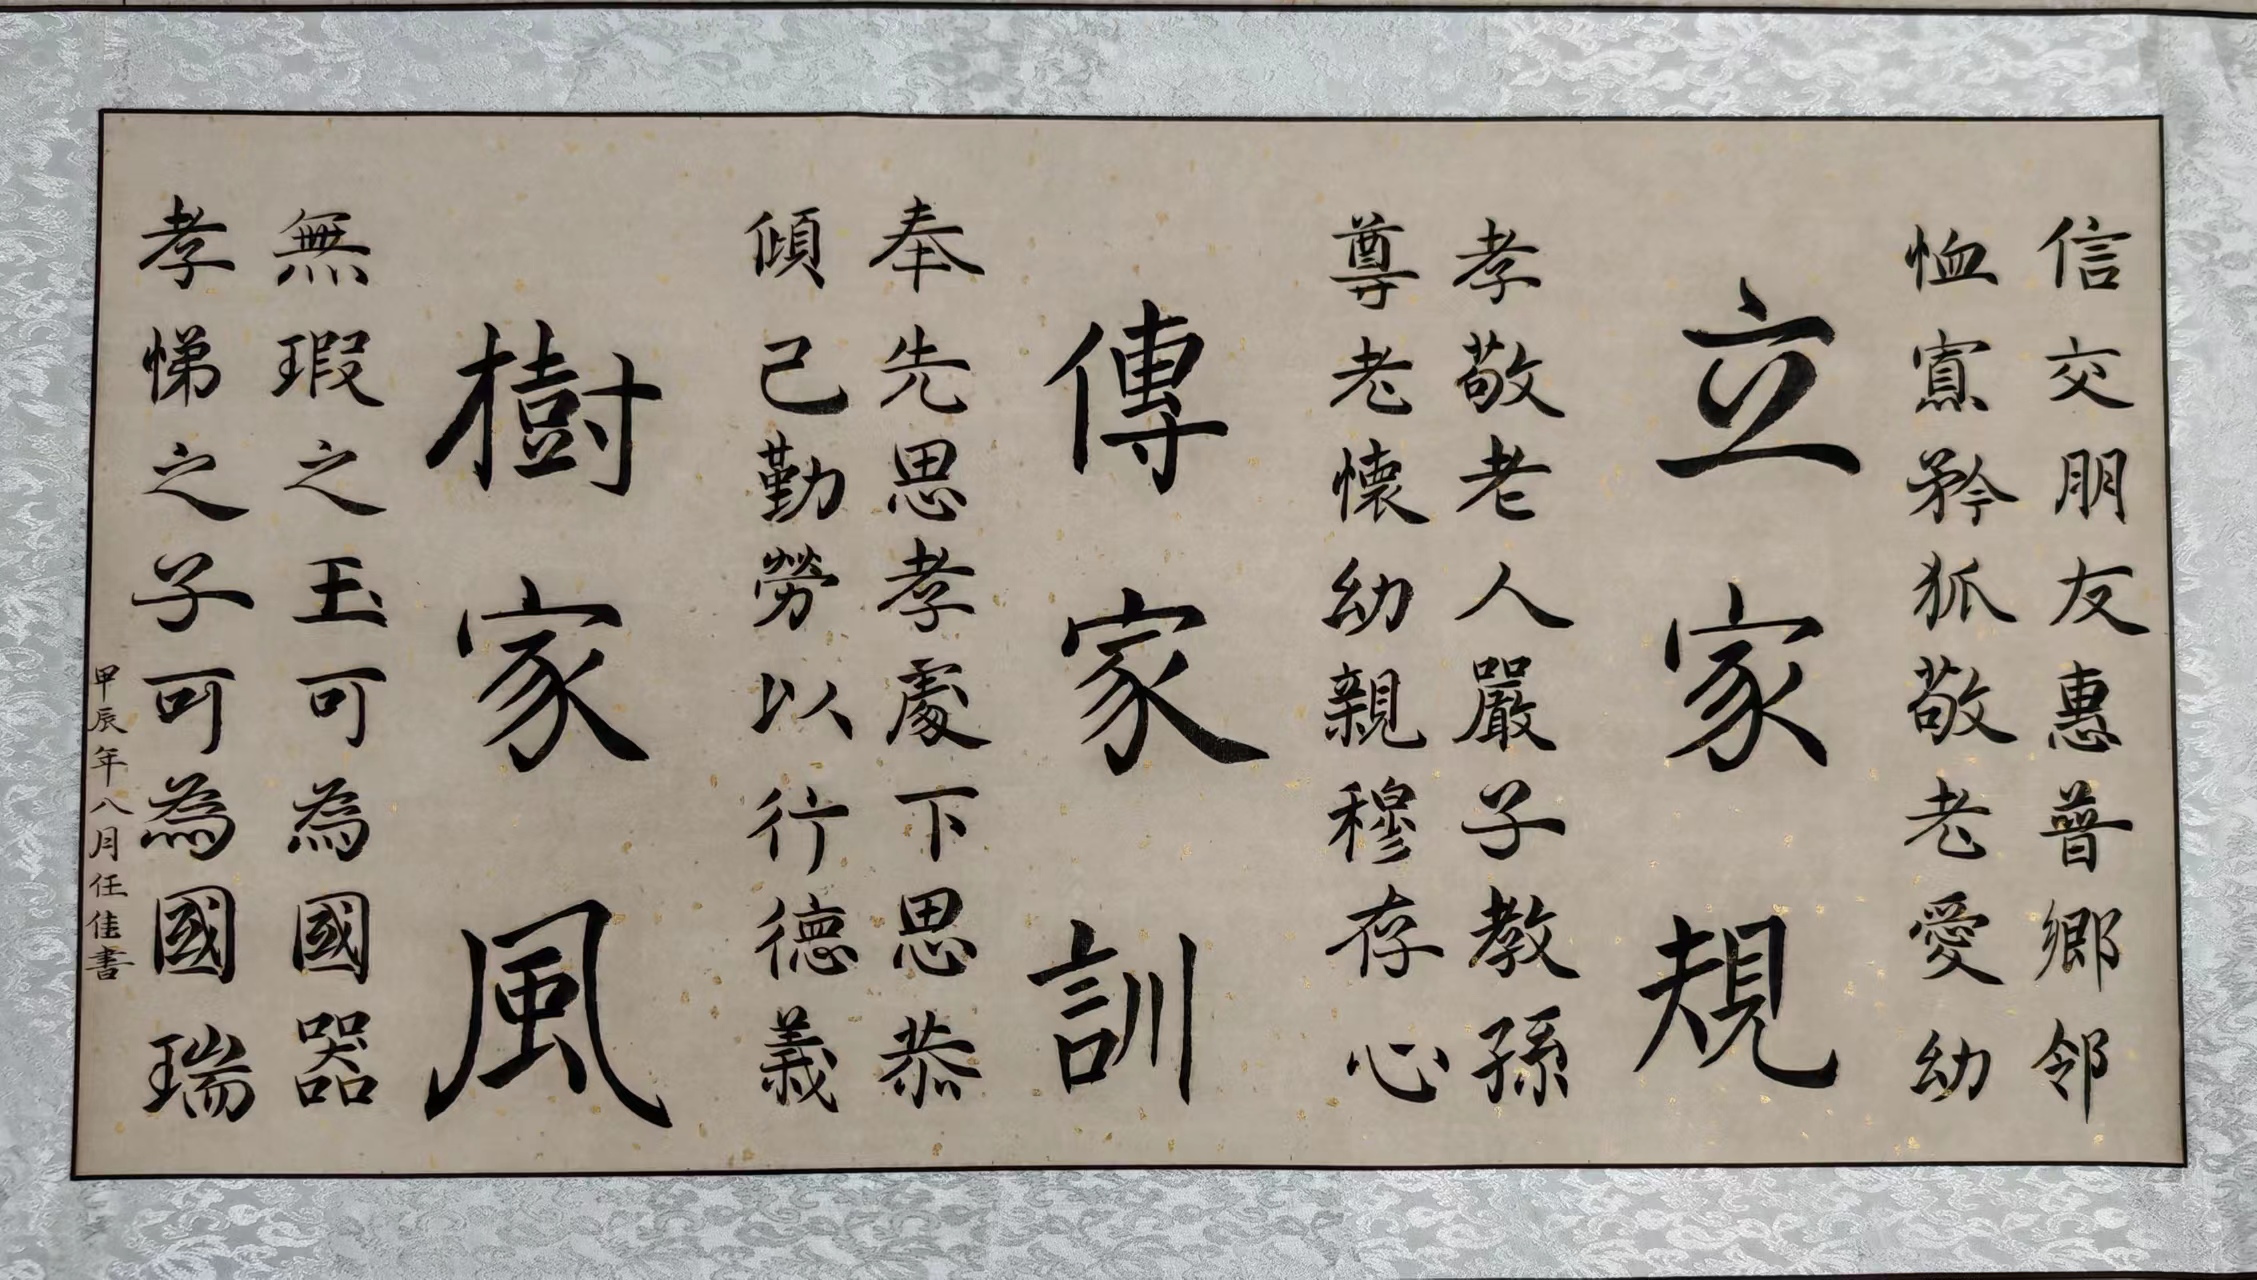 信交朋友惠普鄉邻
恤寡矜狐敬老愛幼
立家規
孝敬老人嚴子教孫
尊老懷幼親穆存心
傳家訓
奉先思孝處下思恭
傾己勤勞以行德義
樹家風
無瑕之玉可為國器
孝悌之子可為國瑞
甲辰年八月任佳書